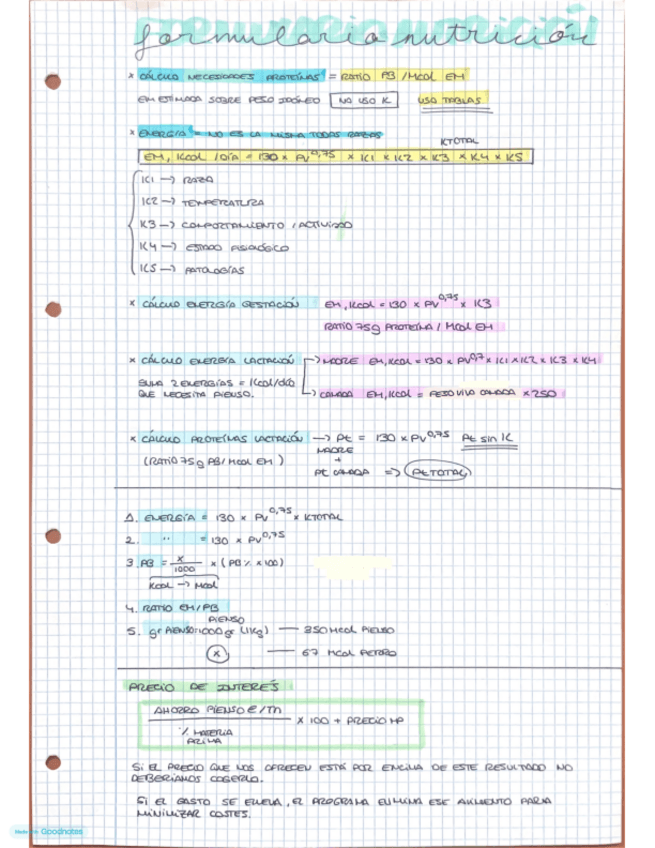 formulario nutrición
* CÁLCULO NECESIDADES PROTEÍNAS = RATIO PB/Mcal EM
EM ESTIMADA SOBRE PESO IDÓNEO NO USO K USO TABLAS
* ENERGÍA = NO ES LA MISMA TODAS RAZAS
KTOTAL
EM, Kcal/DÍA = 130 x PV^0,75 x K1 x K2 x K3 x K4 x K5
K1 → RAZA
K2 → TEMPERATURA
K3 → COMPORTAMIENTO / ACTIVIDAD
K4 → ESTADO FISIOLÓGICO
K5 → PATOLOGÍAS
* CÁLCULO ENERGÍA GESTACIÓN EM, Kcal = 130 x PV^0,75 x K3
RATIO 75g PROTEÍNA / Mcal EM
* CÁLCULO ENERGÍA LACTACIÓN → MADRE EM, Kcal = 130 x PV^0,7 x K1 x K2 x K3 x K4
SUMA 2 ENERGÍAS = Kcal/día
QUE NECESITA PIENSO. → CAMADA EM, Kcal = PESO VIVO CAMADA x 250
* CÁLCULO PROTEÍNAS LACTACIÓN → Pt = 130 x PV^0,75 Pt sin K
(RATIO 75g PB/Mcal EM) MADRE
+
Pt CAMADA => Pt TOTAL
1. ENERGÍA = 130 x PV^0,75 x KTOTAL
2. " = 130 x PV^0,75
3. PB = x/1000 x (PB% x 100)
Kcal → Mcal
4. RATIO EM/PB
PIENSO
5. gr PIENSO: 1000 gr (1Kg) — 350 Mcal PIENSO
x — 67 Mcal PERRO
PRECIO DE INTERÉS
AHORRO PIENSO €/Tn
x 100 + PRECIO MP
% MATERIA
PRIMA
SI EL PRECIO QUE NOS OFRECEN ESTÁ POR ENCIMA DE ESTE RESULTADO NO
DEBERÍAMOS COGERLO.
SI EL GASTO SE ELEVA, EL PROGRAMA ELIMINA ESE AUMENTO PARA
MINIMIZAR COSTES.
Goodnotes